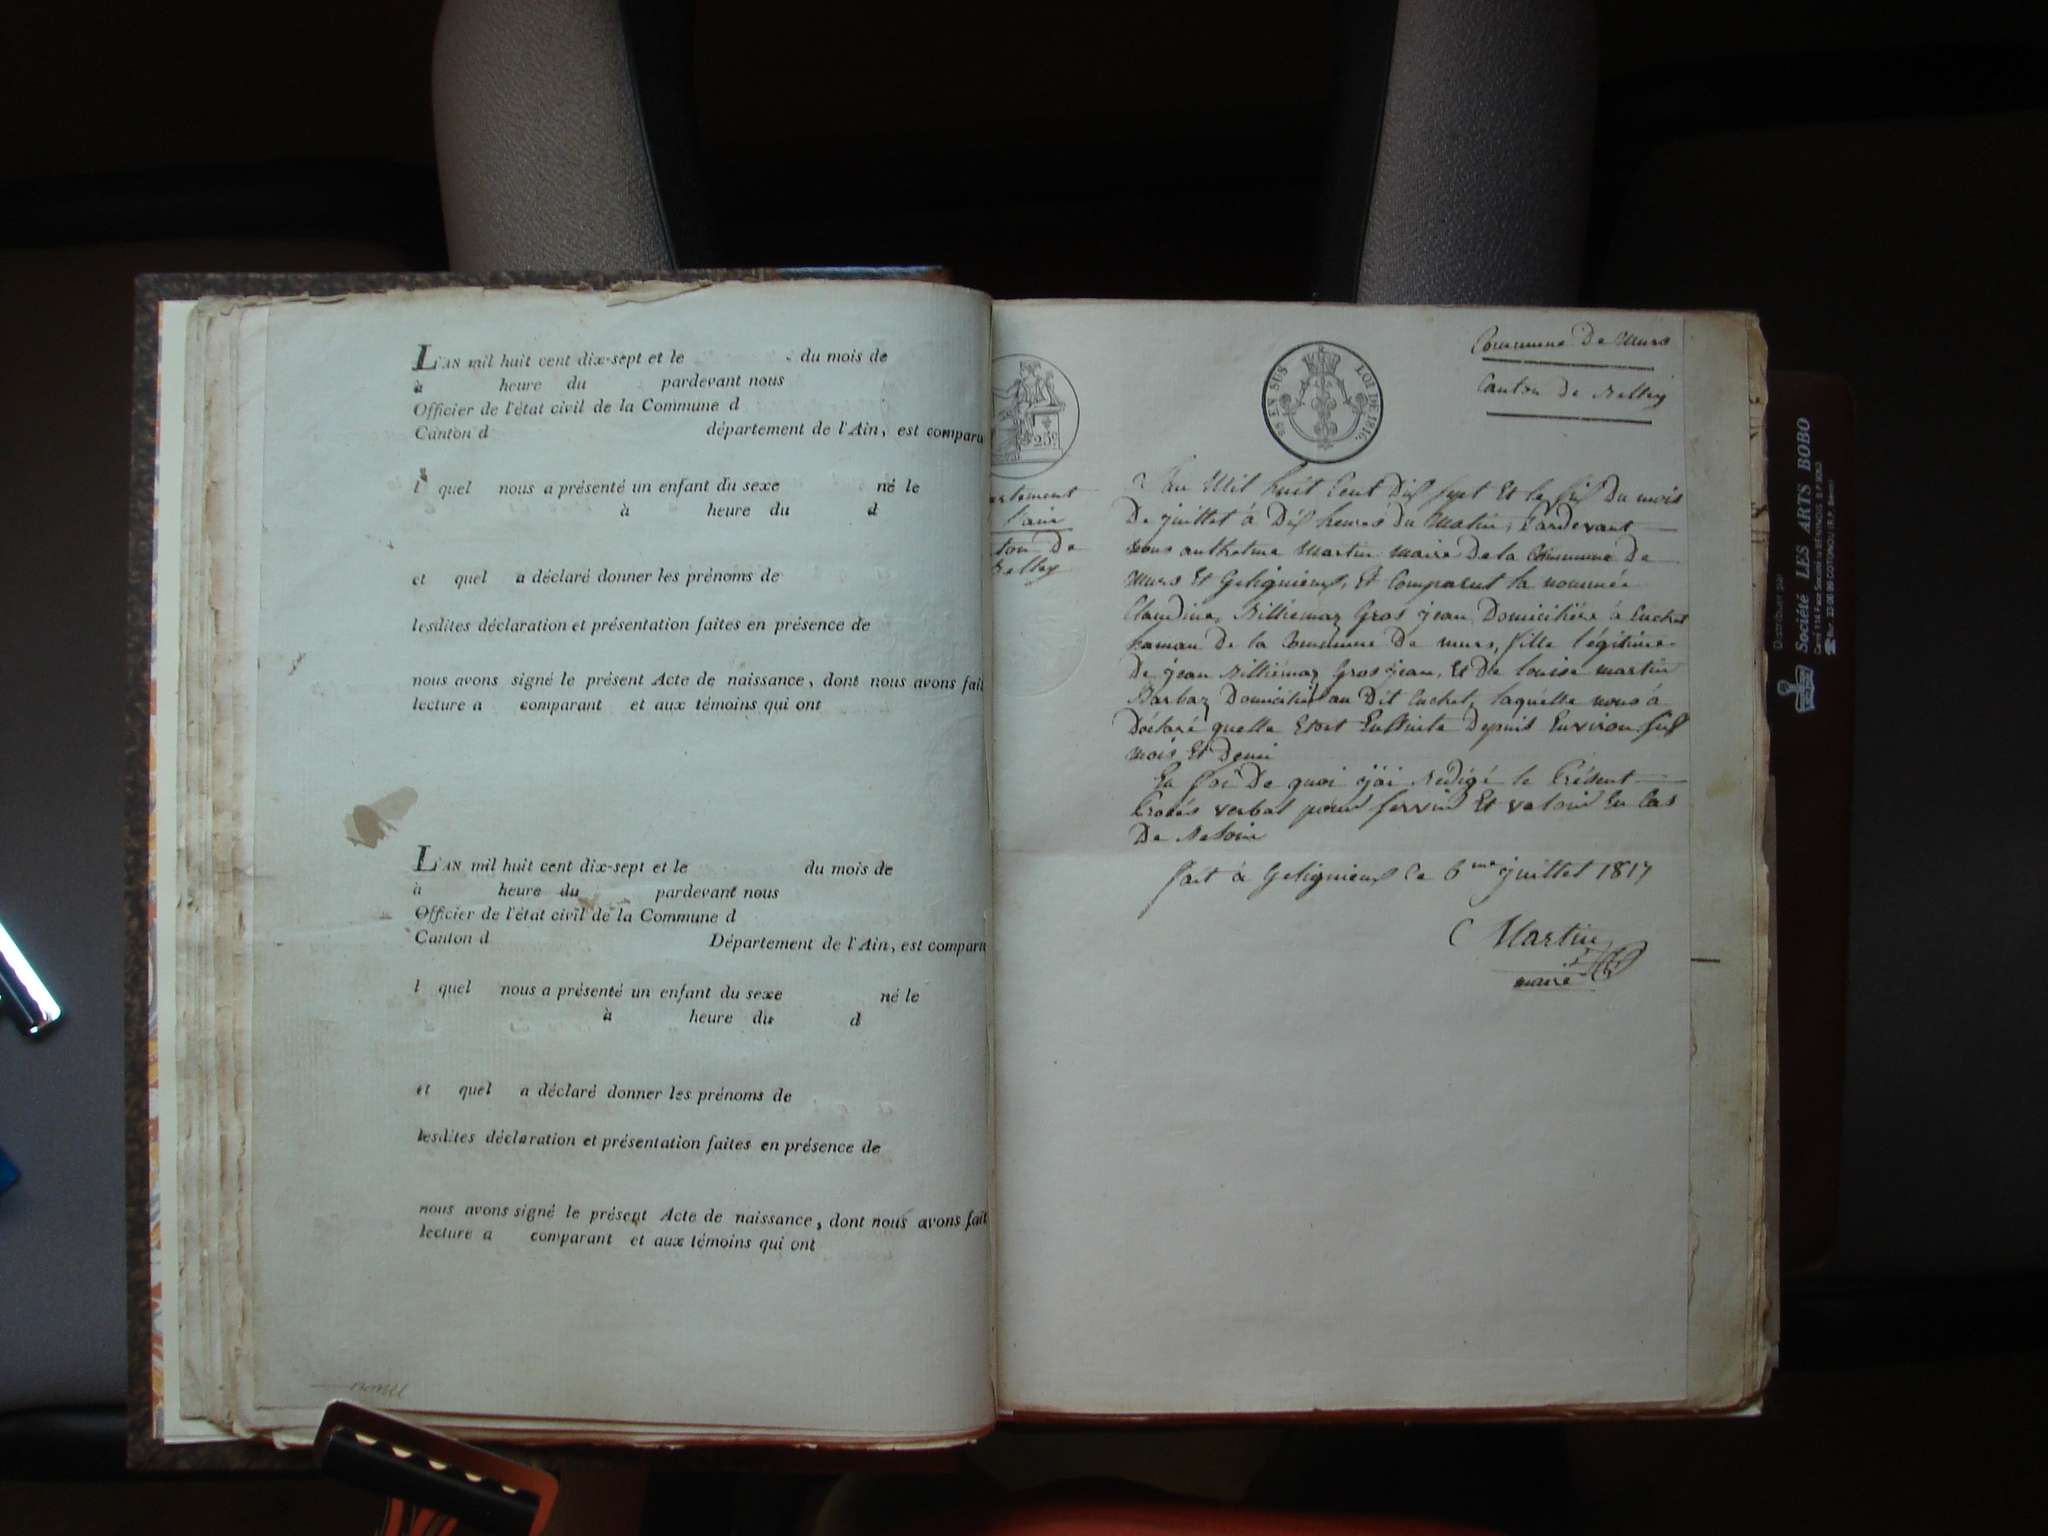 L'AN mil huit cent dix-sept et le du mois de
à heure du pardevant nous
Officier de l'état civil de la Commune d
Canton d département de l'Ain, est comparu
l quel nous a présenté un enfant du sexe né le
à heure du d
et quel a déclaré donner les prénoms de
lesdites déclaration et présentation faites en présence de
nous avons signé le présent Acte de naissance, dont nous avons fait
lecture a comparant et aux témoins qui ont
L'AN mil huit cent dix-sept et le du mois de
à heure du pardevant nous
Officier de l'état civil de la Commune d
Canton d Département de l'Ain, est comparu
l quel nous a présenté un enfant du sexe né le
à heure du d
et quel a déclaré donner les prénoms de
lesdites déclaration et présentation faites en présence de
nous avons signé le présent Acte de naissance, dont nous avons fait
lecture a comparant et aux témoins qui ont
25c
EN SUS LOI DE 1816.
Commune De Murs
Canton De Belley
artement
l'ain
ton De
Belley
L'an Mil huit Cent Dix sept Et le six Du mois
De juillet à Dix heures du Matin, Pardevant
nous anthelme Martin maire De la Commune De
Murs Et Gelignieux, Et Comparut la nommée
Claudine Billiemaz Gros jean Domiciliée à Cuchet
hamau De la Commune De murs, fille légitime
De jean Billiemaz Gros jean, Et De louise martin
Barbaz Domiciliés au Dit Cuchet, laquelle nous à
Déclaré quelle Etoit Enceinte Depuis Environ six
mois Et Demi
En foi De quoi j'ai Redigé le Présent
Procès verbal pour servir Et valoir En Cas
De Besoin
fait à Gelignieux Ce 6me juillet 1817
Martin
maire
Distribuer par
Société LES ARTS BOBO